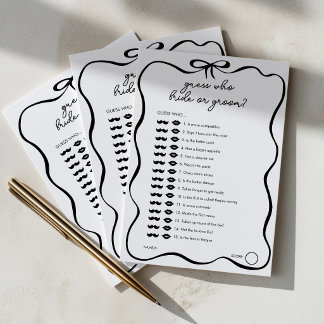 guess who
bride or groom?
GUESS WHO...
1. Is more competitive
2. Said I love you first
3. Is the better cook
4. Has a bigger appetite
5. Has a sleeper
6. Wears the pants
7. Does more chores
8. Is the better dancer
9. Takes longer to get ready
10. Is the first to admit they're wrong
11. Is more romantic
12. Made the first move
13. Takes up more of the bed
14. Is the
15. Is the first to forgive
NAME:
SCORE:
gue
bride
GUESS WHO...
gu
bride
GUESS WHO...